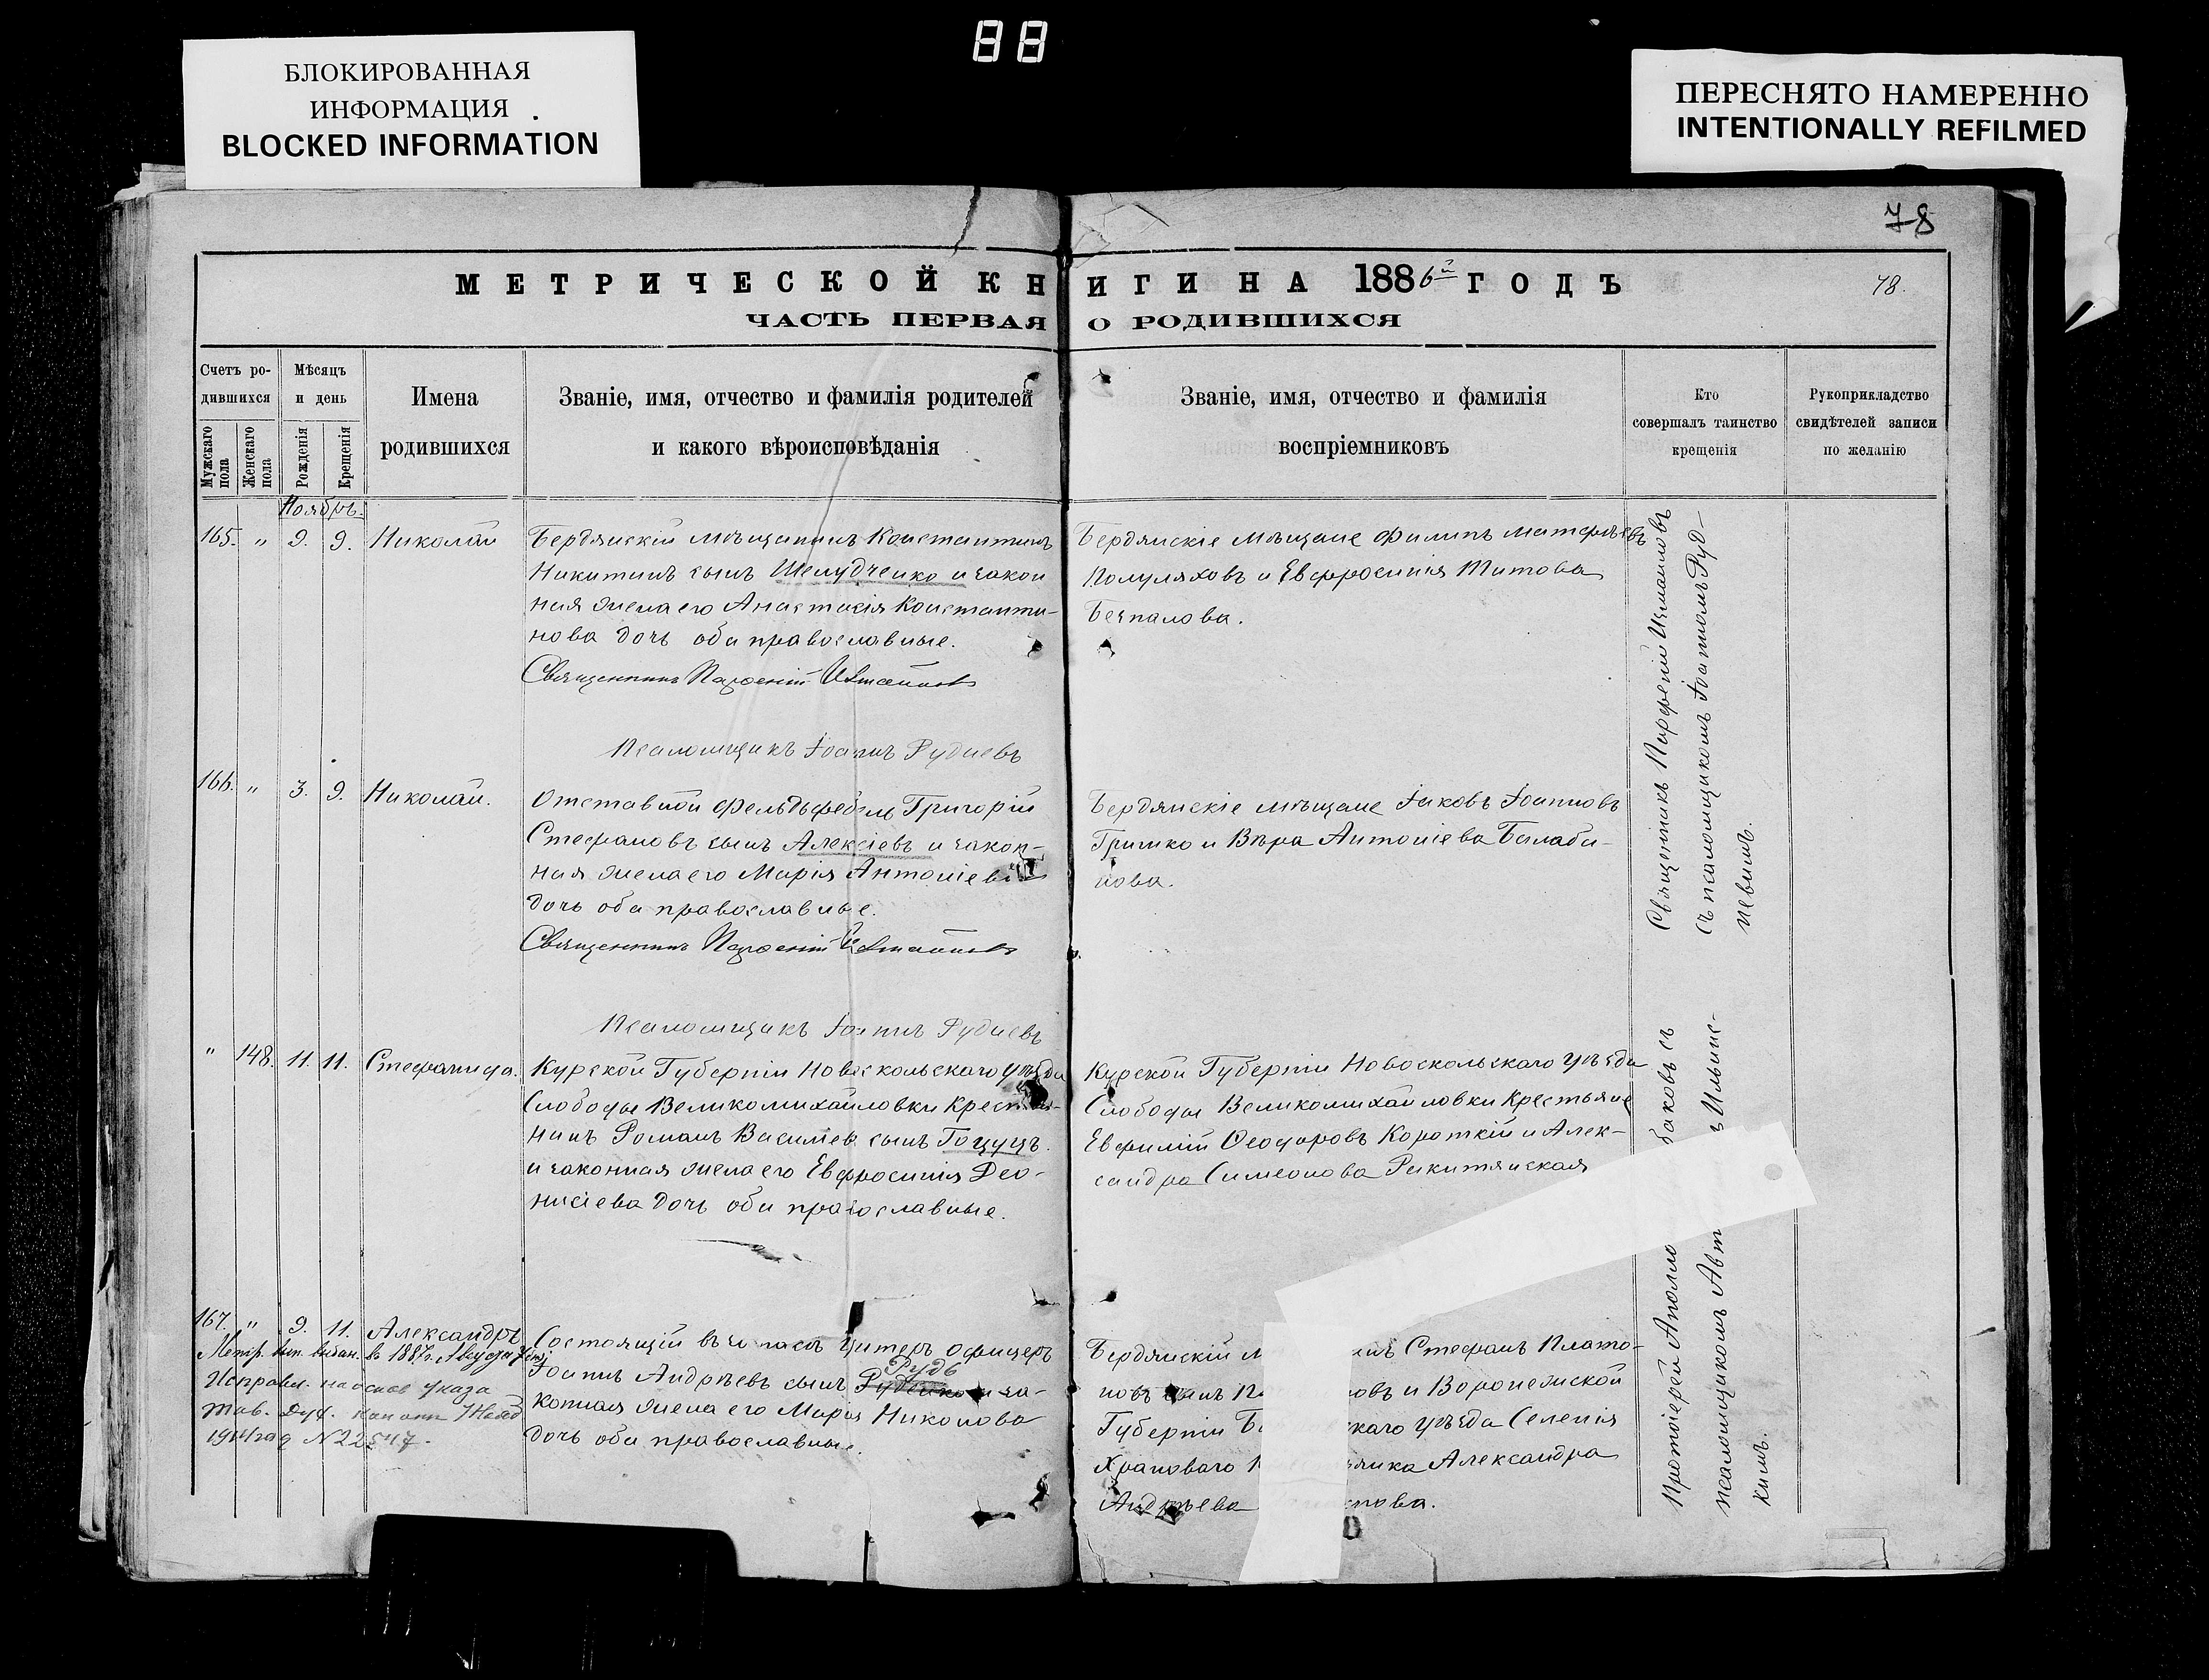 88
БЛОКИРОВАННАЯ
ИНФОРМАЦИЯ
BLOCKED INFORMATION
ПЕРЕСНЯТО НАМЕРЕННО
INTENTIONALLY REFILMED
78
МЕТРИЧЕСКОЙ КНИГИ НА 1886й ГОДЪ
78.
ЧАСТЬ ПЕРВАЯ О РОДИВШИХСЯ
Счетъ ро-
дившихся
Мужскаго
пола
Женскаго
пола
Мѣсяцъ
и день
Рожденія
Крещенія
Имена
родившихся
Званіе, имя, отчество и фамилія родителей
и какого вѣроисповѣданія
Званіе, имя, отчество и фамилія
воспріемниковъ
Кто
совершалъ таинство
крещенія
Рукоприкладство
свидѣтелей записи
по желанію
Ноябрь.
165. " 9. 9. Николай
Бердянскій мѣщанинъ Константинъ
Никитинъ сынъ Шелудченко и закон
ная жена его Анастасія Константи-
нова дочь оба православные.
Священникъ Парѳеній
Псаломщикъ Іоаннъ Рудневъ
Бердянскіе мѣщане Филипъ Матѳѣевъ
Полуляховъ и Евфросинія Титова
Безпалова.
166. " 3. 9. Николай.
Отставной Фельдфебель Григорій
Стефановъ сынъ Алексіевъ и закон-
ная жена его Марія Антоніева
дочь оба православные.
Священникъ Парѳеній
Псаломщикъ Іоаннъ Рудневъ
Бердянскіе мѣщане Іаковъ Іоанновъ
Гришко и Вѣра Антоніева Балаба-
нова.
Священникъ Парѳеній
съ псаломщикомъ Іоанномъ Руд-
невымъ.
" 148. 11. 11. Стефанида.
Курской Губерніи Новоскольскаго уѣзда
Слободы Великомихайловки Крестья-
нинъ Романъ Василіев сынъ Гоцуцъ.
и законная жена его Евфросинія Део-
нисіева дочь оба православные.
Курской Губерніи Новоскольскаго уѣзда
Слободы Великомихайловки Крестьяне
Евфимій Ѳеодоровъ Короткій и Алек-
сандра Симеонова Ракитянская
167. " 9. 11. Александръ
Метр. вып. выдан. в 1887 г. Августа 7
Исправл. на основ указа
Тав. Дух.
1914 год N 22547.
Состоящій въ запасѣ Унтеръ офицеръ
Іоаннъ Андрѣевъ сынъ Рудь
Рудченко и за-
конная жена его Марія Николова
дочь оба православные.
Бердянскій м инъ Стефанъ Плато-
новъ сынъ По овъ и Воронежской
Губерніи Б скаго уѣзда Селенія
Храповаго К янка Александра
Андрѣева нова.
Протоіерей Аполло баковъ съ
псаломщикомъ Авт ъ Ильинс-
кимъ.